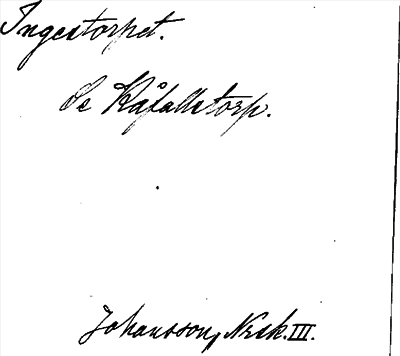 Ingestorpet.
Se Kåfallstorp.
Johansson, Nesk. III.